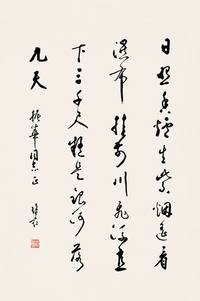 日照香炉生紫烟遥看
瀑布挂前川飞流直
下三千尺疑是银河落
九天
振华同志正